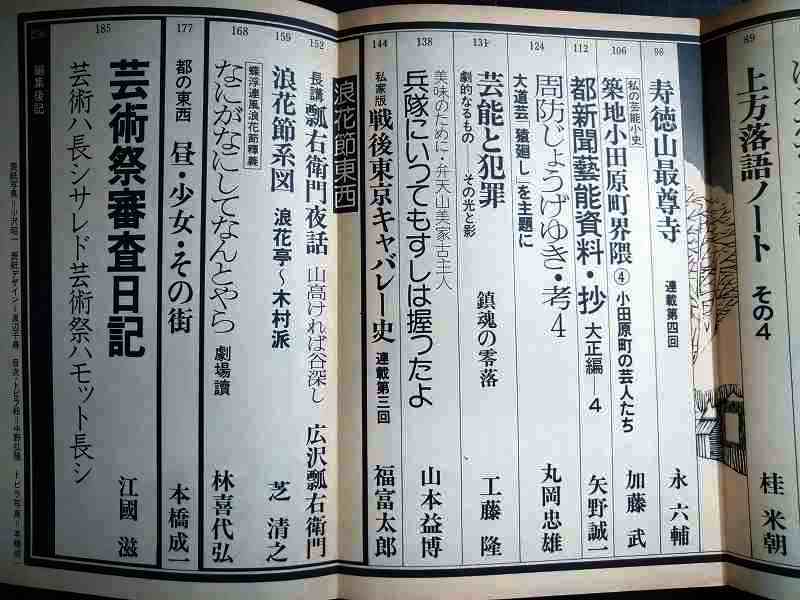 89
上方落語ノート その4
桂 米朝
98
寿徳山最尊寺
連載第四回
永 六輔
106
私の芸能小史
築地小田原町界隈④ 小田原町の芸人たち
加藤 武
112
都新聞藝能資料・抄 大正編―4
矢野誠一
124
周防じょうげゆき・考4
大道芸「猿廻し」を主題に
丸岡忠雄
131
芸能と犯罪
劇的なるもの――その光と影
鎮魂の零落
工藤 隆
138
美味のために・弁天山美家古主人
兵隊にいってもすしは握ったよ
山本益博
144
私家版 戦後東京キャバレー史 連載第三回
福富太郎
浪花節東西
152
長講 瓢右衛門夜話 山高ければ谷深し
広沢瓢右衛門
159
浪花節系図 浪花亭〜木村派
芝 清之
168
蝶浮連風浪花節釋義
なにがなにしてなんとやら 劇場讀
林喜代弘
177
都の東西 昼・少女・その街
本橋成一
185
芸術祭審査日記
芸術ハ長シサレド芸術祭ハモット長シ
江國 滋
編集後記
表紙写真＝小沢昭一